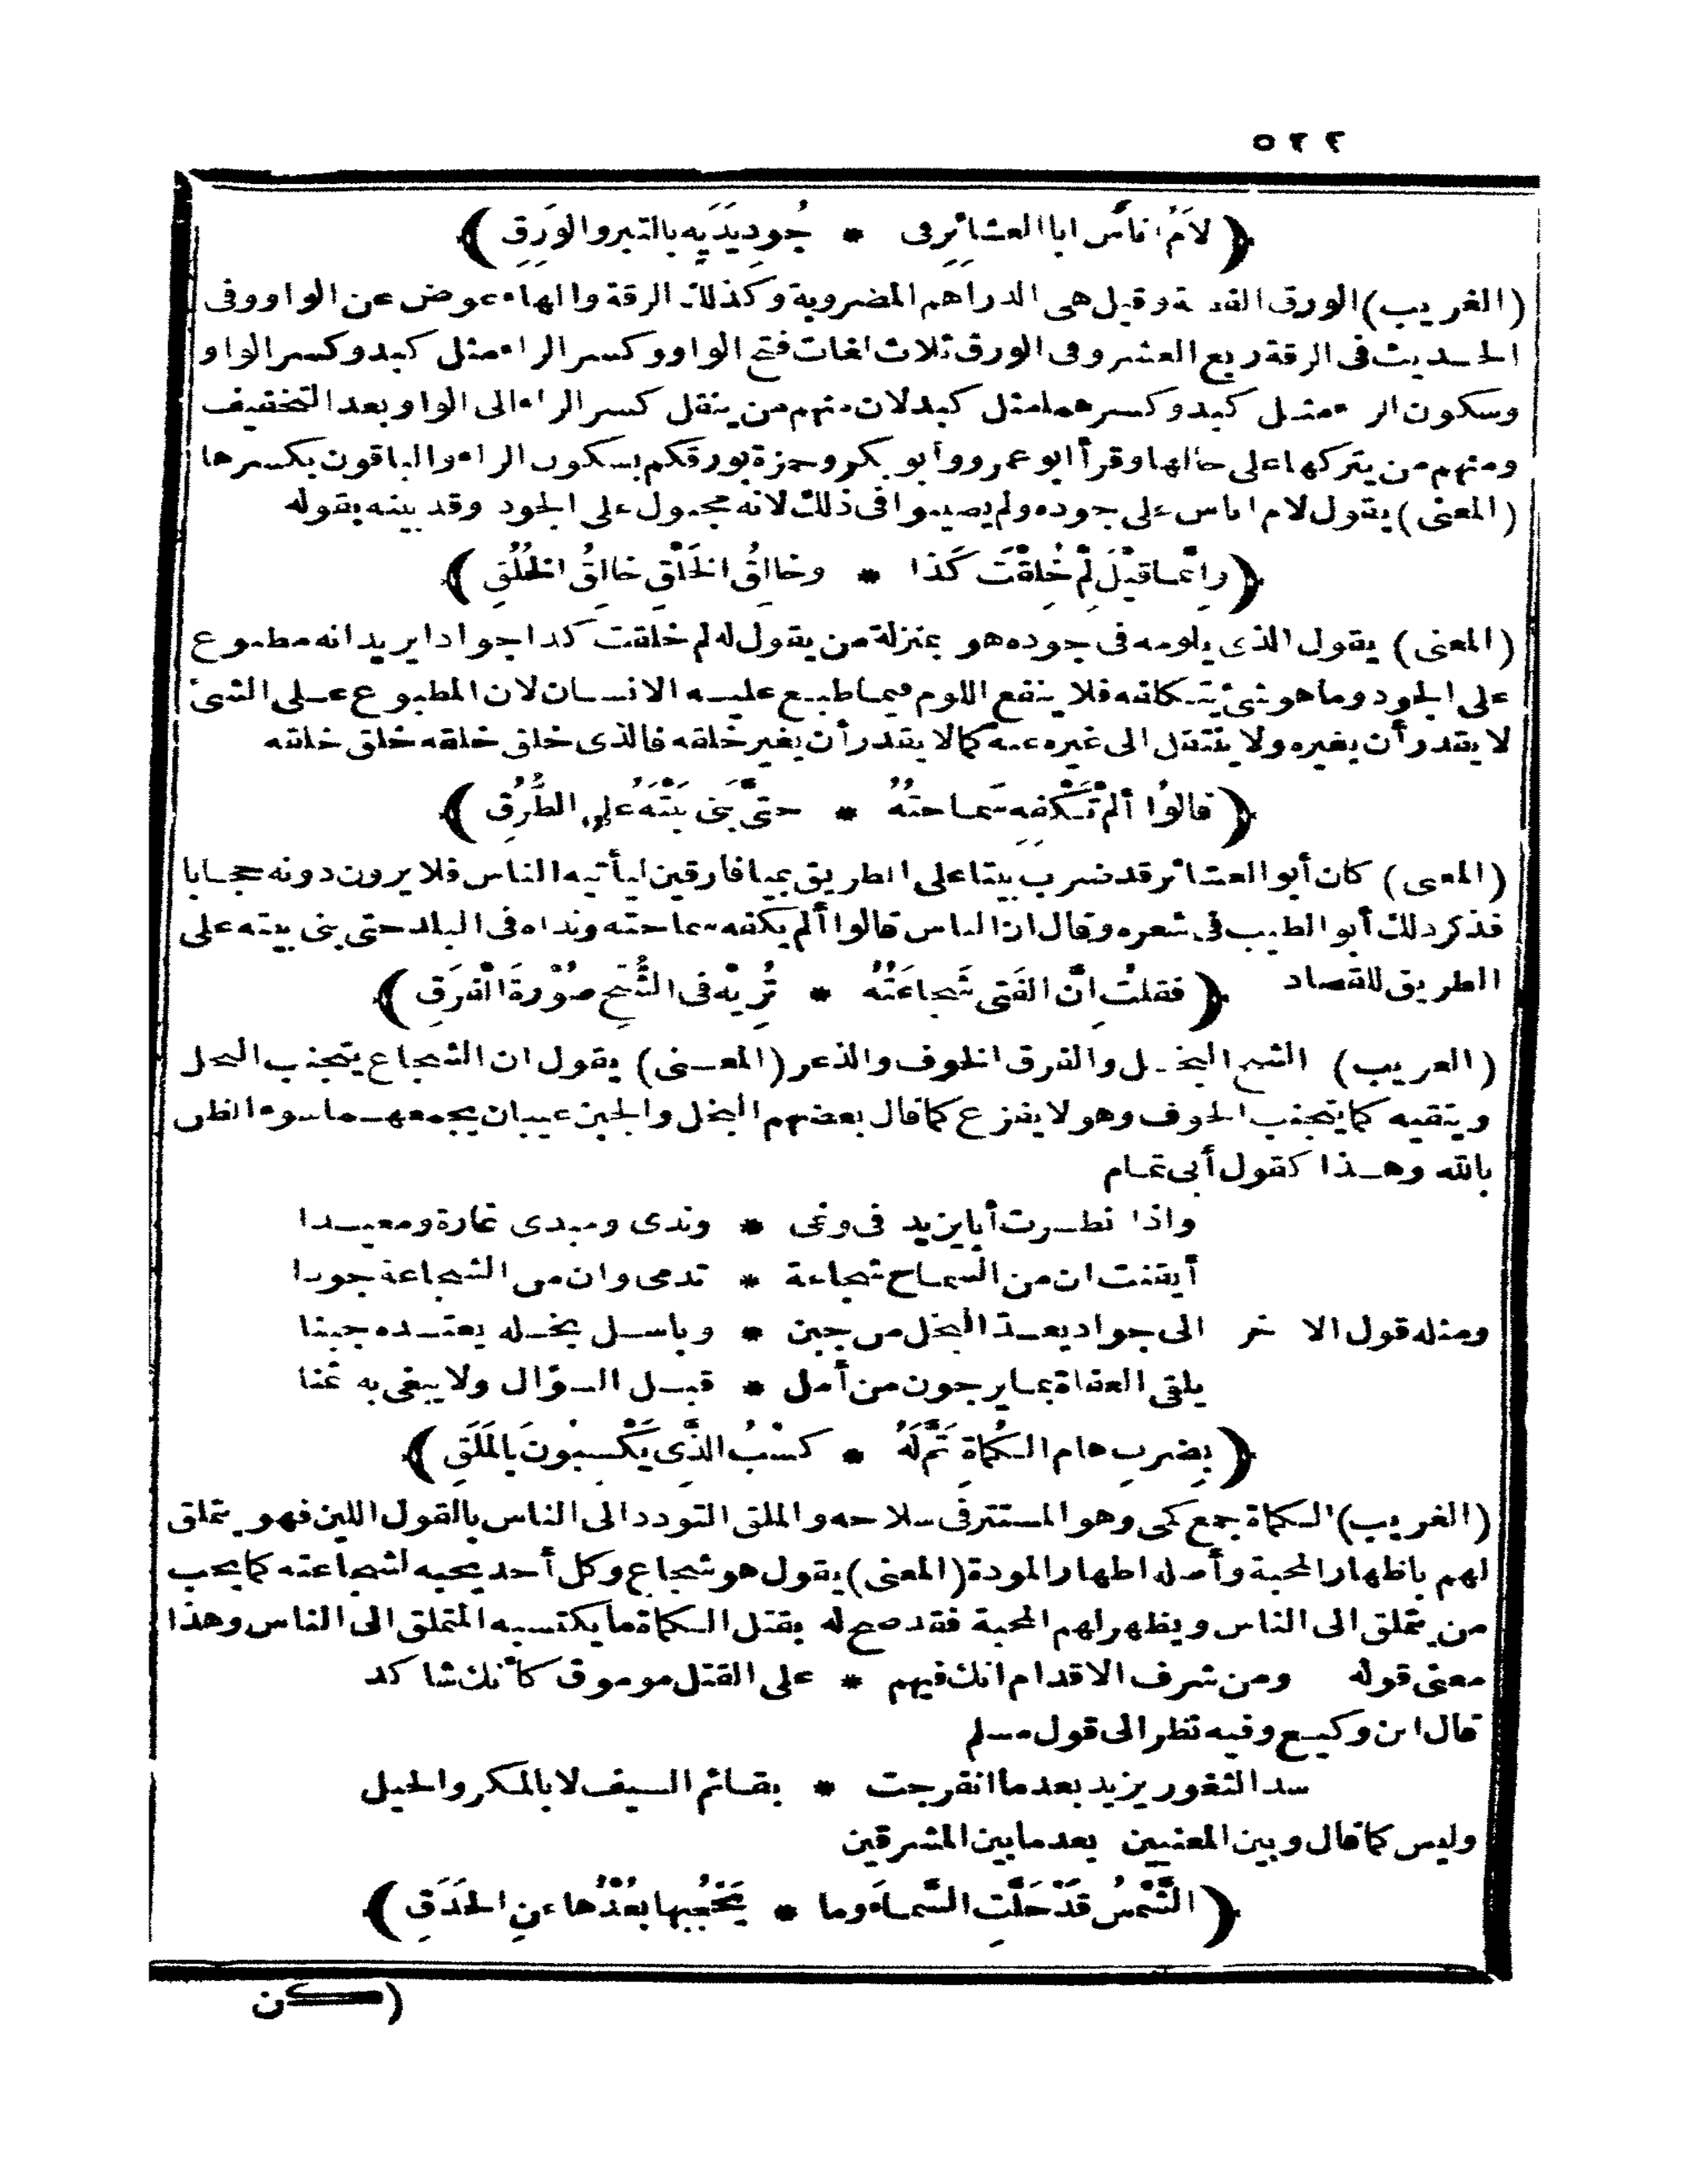 ٥٢٢
(لَامَ أُنَاسٌ ابا العشائرِ فى * جُودِ يَدَيهِ بالتبرِ والوَرِقِ)
(الغريب) الورق الفضة وقيل هى الدراهم المضروبة وكذلك الرقة والهاء عوض عن الواو وفى
الحديث فى الرقة ربع العشر وفى الورق ثلاث لغات فتح الواو وكسر الراء مثل كبد وكسر الواو
وسكون الراء مثل كبد وكسرهما مثل كبد لان منهم من ينقل كسر الراء الى الواو بعد التخفيف
ومنهم من يتركها على حالها وقرأ ابو عمرو وأبو بكر وحمزة بورقكم بسكون الراء والباقون بكسرها
(المعنى) يقول لام اناس على جوده ولم يصيبوا فى ذلك لانه مجبول على الجود وقد بينه بقوله
(وإنَّما قيْلَ لِمْ خُلِقْتَ كَذا * وخالقُ الخَلْقِ خالِقُ الخُلُقِ)
(المعنى) يقول الذى يلومه فى جوده هو بمنزلة من يقول له لم خلقت كذا جوادا يريد انه مطبوع
على الجود وما هو شئ يتكلفه فلا ينفع اللوم فيما طبع عليه الانسان لان المطبوع على الشئ
لا يقدر أن يغيره ولا ينتقل الى غيره عنه كما لا يقدر أن يغير خلقه فالذى خلق خلقه خلق خلقه
(قالُوا ألَمْ تَكْفِهِ سَماحتُهُ * حتَّى بَنى بَيْتَهُ على الطُّرُقِ)
(المعنى) كان أبو العشائر قد ضرب بيتا على الطريق بميافارقين ليأتيه الناس فلا يرون دونه حجابا
فذكر ذلك أبو الطيب فى شعره وقال ان الناس قالوا ألم يكفه سماحته ونداه فى البلد حتى بنى بيته على
الطريق للقصاد (فقلتُ إنَّ الفَتى شَجاعَتُهُ * تُرِيْهِ فى الشُّحِّ صُوْرةَ الْفَرَقِ)
(الغريب) الشح البخل والفرق الخوف والذعر (المعنى) يقول ان الشجاع يتجنب البخل
ويتقيه كما يتجنب الخوف وهو لا يفزع كما قال بعضهم البخل والجبن عيبان يجمعهما سوء الظن
بالله وهذا كقول أبى تمام
واذا نظرت أبا يزيد فى وغى * وندى ومبدى غارة ومعيدا
أيقنت ان من السماح شجاعة * تدمى وان من الشجاعة جودا
ومثله قول الآخر الى جواد يعدّ البخل من جبن * وباسل بخله يعتده جبنا
يلقى العفاة بما يرجون من أمل * قبل السؤال ولا يبغى به ثمنا
(بِضربِ هامِ الكُماةِ تَمَّ لَهُ * كسْبُ الذَّى يَكْسبُونَ بالمَلَقِ)
(الغريب) الكماة جمع كمى وهو المستتر فى سلاحه والملق التودد الى الناس بالقول اللين فهو يتملق
لهم باظهار المحبة وأصله اظهار المودة (المعنى) يقول هو شجاع وكل أحد يحبه لشجاعته كما يحب
من يتملق الى الناس ويظهر لهم المحبة فقد صح له بقتل الكماة ما يكتسبه المتملق الى الناس وهذا
معنى قوله ومن شرف الاقدام انك فيهم * على القتل موموق كأنك شاكد
قال ابن وكيع وفيه نظر الى قول مسلم
سد الثغور يزيد بعد ما انفرجت * بقائم السيف لا بالمكر والحيل
وليس كما قال وبين المعنيين بعد ما بين المشرقين
(الشَّمْسُ قَدْ حَلَّتِ السَّماءَ وما * يَحْجُبها بُعْدُها عنِ الحَدَقِ)
(كن